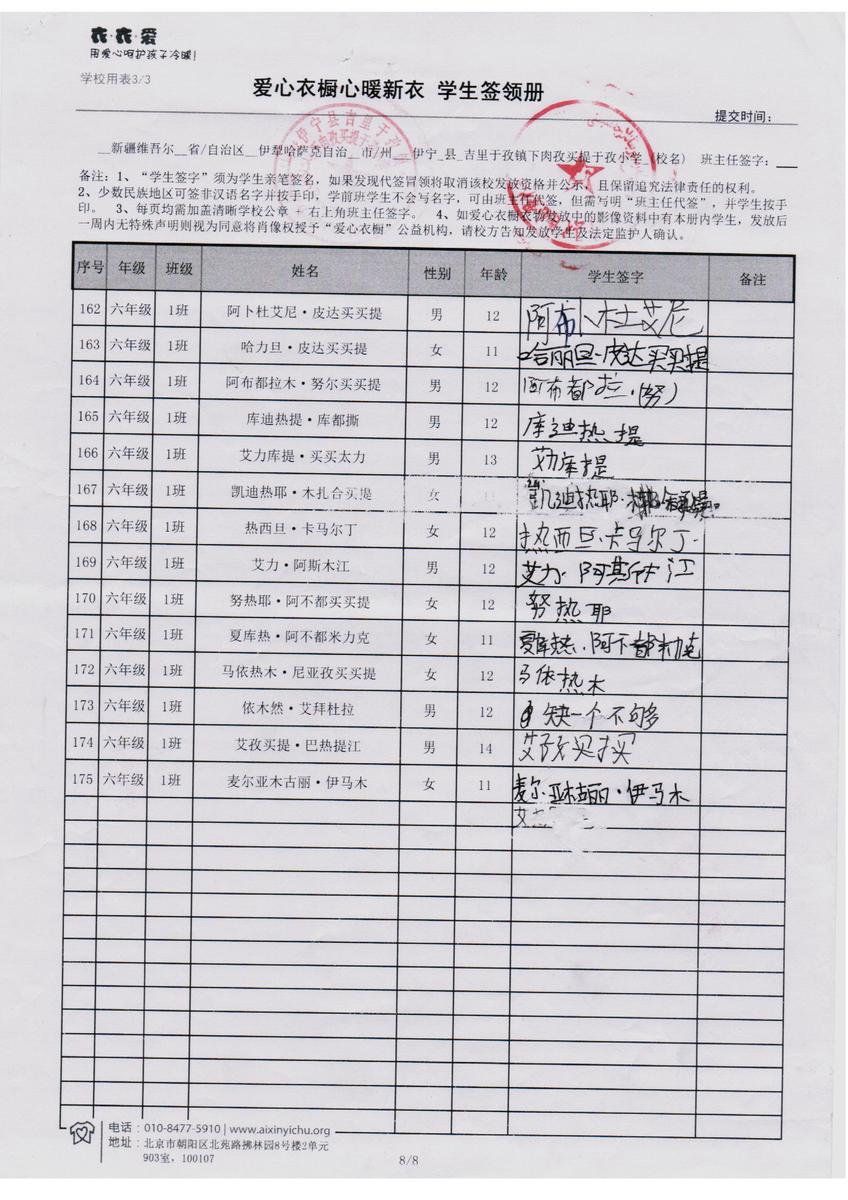 衣·衣·爱
用爱心呵护孩子冷暖!
学校用表3/3
爱心衣橱心暖新衣 学生签领册
提交时间:
__新疆维吾尔__省/自治区__伊犁哈萨克自治__市/州__伊宁_县_吉里于孜镇下肉孜买提于孜小学_(校名) 班主任签字:
备注:1、“学生签字”须为学生亲笔签名,如果发现代签冒领将取消该校发放资格并公示,且保留追究法律责任的权利。
2、少数民族地区可签非汉语名字并按手印,学前班学生不会写名字,可由班主任代签,但需写明“班主任代签”,并学生按手
印。 3、每页均需加盖清晰学校公章,右上角班主任签字。 4、如爱心衣橱衣物发放中的影像资料中有本册内学生,发放后
一周内无特殊声明则视为同意将肖像权授予“爱心衣橱”公益机构,请校方告知发放学生及法定监护人确认。
序号 年级 班级 姓名 性别 年龄 学生签字 备注
162 六年级 1班 阿卜杜艾尼·皮达买买提 男 12 阿布卜杜艾尼
163 六年级 1班 哈力旦·皮达买买提 女 11 哈丽旦·皮达买买提
164 六年级 1班 阿布都拉木·努尔买买提 男 12 阿布都拉·(努)
165 六年级 1班 库迪热提·库都撕 男 12 库迪热提
166 六年级 1班 艾力库提·买买太力 男 13 艾力库提
167 六年级 1班 凯迪热耶·木扎合买提 女 11 凯迪热耶·
168 六年级 1班 热西旦·卡马尔丁 女 12 热西旦·卡马尔丁·
169 六年级 1班 艾力·阿斯木江 男 12 艾力·阿斯木江
170 六年级 1班 努热耶·阿不都买买提 女 12 努热耶
171 六年级 1班 夏库热·阿不都米力克 女 11 夏库热·阿不都米力克
172 六年级 1班 马依热木·尼亚孜买买提 女 12 马依热木
173 六年级 1班 依木然·艾拜杜拉 男 12 缺一个不够
174 六年级 1班 艾孜买提·巴热提江 男 14 艾孜买提
175 六年级 1班 麦尔亚木古丽·伊马木 女 11 麦尔亚木古丽·伊马木
艾
电话:010-8477-5910 | www.aixinyichu.org
地址:北京市朝阳区北苑路拂林园8号楼2单元
903室,100107
8/8